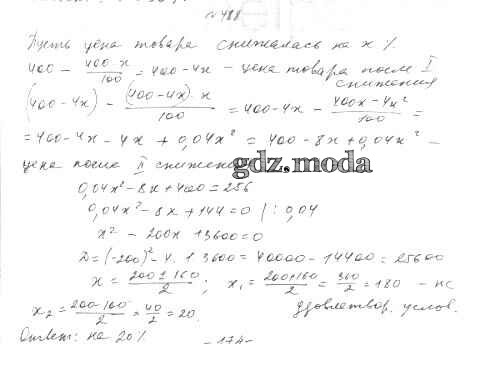 № 488
Пусть цена товара снижалась на x %.
400 - 400·x/100 = 400-4x - цена товара после I
снижения
(400-4x) - (400-4x)·x/100 = 400-4x - 400x-4x²/100 =
= 400-4x-4x+0,04x² = 400-8x+0,04x² -
цена после II снижен
gdz.moda
0,04x²-8x+400=256
0,04x²-8x+144=0 |:0,04
x²-200x+3600=0
D=(-200)²-4·1·3600=40000-14400=25600
x = 200±160/2 ; x₁ = 200+160/2 = 360/2 = 180 - не
удовлетвор. услов.
x₂ = 200-160/2 = 40/2 = 20.
Ответ: на 20%
-174-